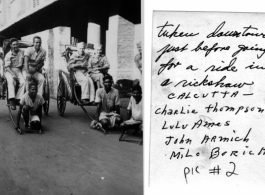 taken downtown
just before going
for a ride in
a rickshaw
CALCUTTA -
Charlie Thompson
LuLu Ames
John
Milo
PIC #2